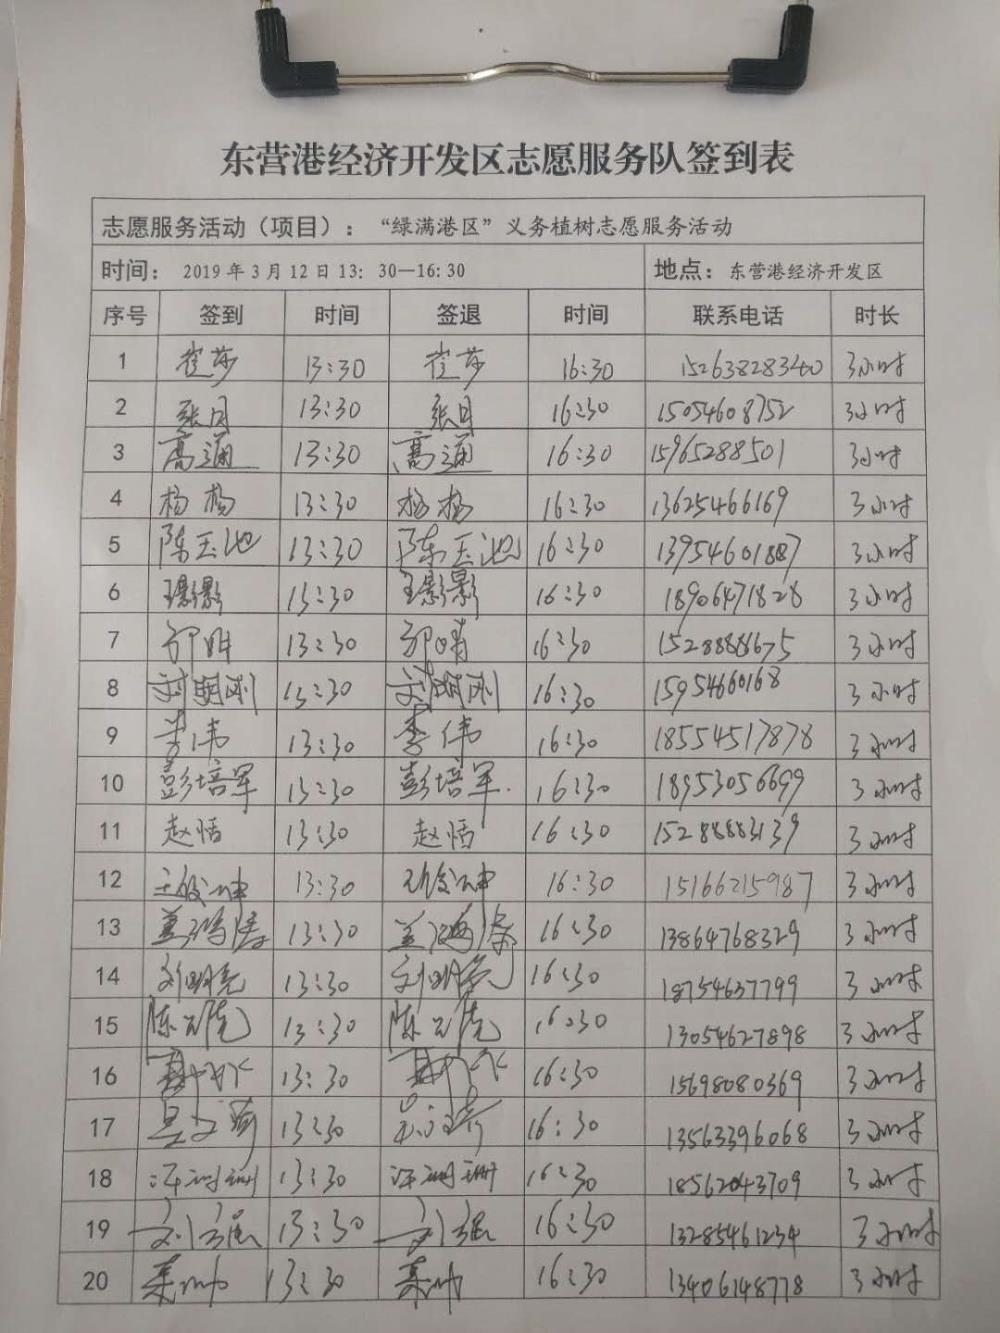 东营港经济开发区志愿服务队签到表
志愿服务活动（项目）：“绿满港区”义务植树志愿服务活动
时间： 2019年3月12日13：30—16:30 地点：东营港经济开发区
序号 签到 时间 签退 时间 联系电话 时长
1 崔莎 13:30 崔莎 16:30 15263828340 3小时
2 张月 13:30 张月 16:30 15054608752 3小时
3 高通 13:30 高通 16:30 15965288501 3小时
4 杨杨 13:30 杨杨 16:30 13625466169 3小时
5 陈玉池 13:30 陈玉池 16:30 13954601887 3小时
6 王影影 13:30 王影影 16:30 18906471828 3小时
7 13:30 16:30 15288881675 3小时
8 刘明刚 13:30 刘明刚 16:30 15954660168 3小时
9 李伟 13:30 李伟 16:30 18554517878 3小时
10 彭培军 13:30 彭培军 16:30 18953056699 3小时
11 赵恬 13:30 赵恬 16:30 15288883139 3小时
12 13:30 16:30 15166215987 3小时
13 13:30 16:30 13864768329 3小时
14 刘明亮 13:30 刘明亮 16:30 18754637799 3小时
15 13:30 16:30 13054627898 3小时
16 13:30 16:30 15698080369 3小时
17 13:30 16:30 13563396068 3小时
18 13:30 16:30 18562043709 3小时
19 刘强 13:30 刘强 16:30 13285461234 3小时
20 13:30 16:30 13406148778 3小时